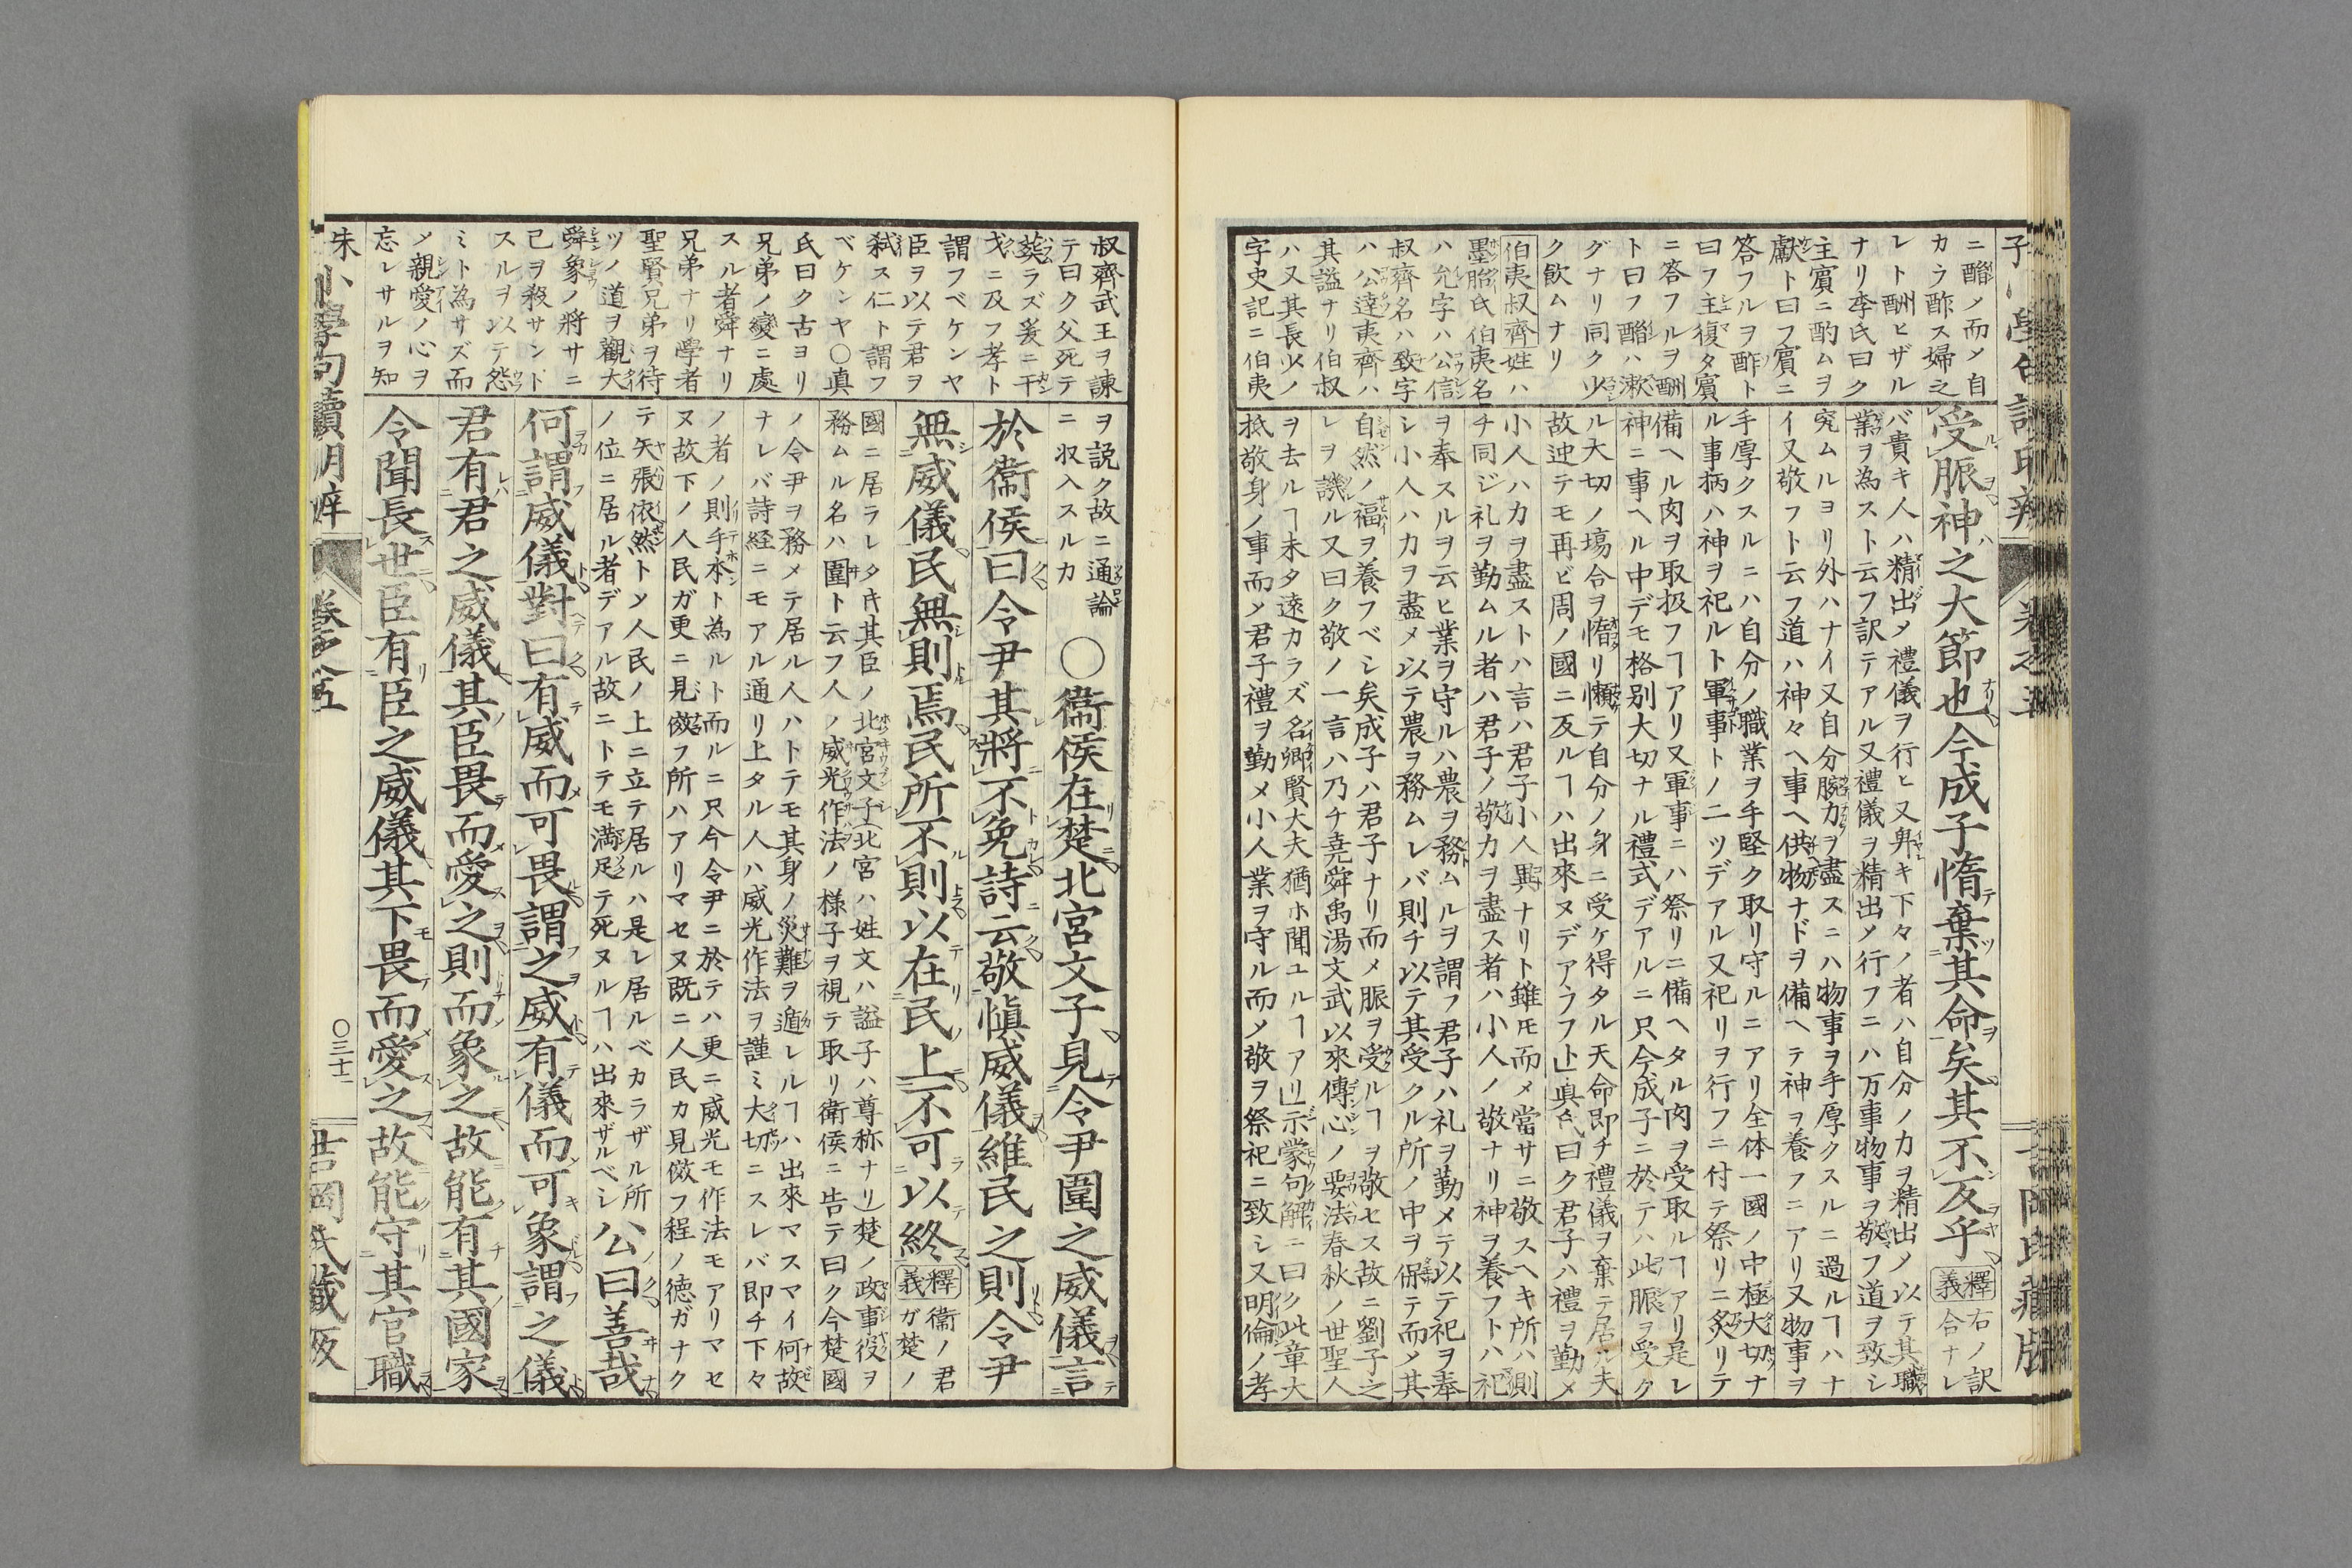 ニ酳ノ而メ自
カラ酢ス婦之
レト酬ヒザル
ナリ李氏曰ク
主賓ニ酌ムヲ
獻ト曰フ賓ニ
答フルヲ酢ト
曰フ主復タ賓
ニ答フルヲ酬
ト曰フ酳ハ漱
グナリ同ク少
ク飲ムナリ
伯夷叔齊姓ハ
墨胎氏伯夷名
ハ允字ハ公信
叔齊名ハ致字
ハ公達夷齊ハ
其謚ナリ伯叔
ハ又其長少ノ
字史記ニ伯夷
受脤神之大節也今成子惰棄其命矣其不反乎
釋義
右ノ訳
合ナレ
バ貴キ人ハ精出メ禮儀ヲ行ヒ又卑キ下々ノ者ハ自分ノカヲ精出メ以テ其職
業ヲ為スト云フ訳テアル又禮儀ヲ精出メ行フニハ万事物事ヲ敬フ道ヲ致シ
究ムルヨリ外ハナイ又自分腕力ヲ盡スニハ物事ヲ手厚クスルニ過ルヿハナ
イ又敬フト云フ道ハ神々ヘ事ヘ供物ナドヲ備ヘテ神ヲ養フニアリ又物事ヲ
手厚クスルニハ自分ノ職業ヲ手堅ク取リ守ルニアリ全体一國ノ中極大切ナ
ル事柄ハ神ヲ祀ルト軍事トノ二ツデアル又祀リヲ行フニ付テ祭リニ炙リテ
備ヘル肉ヲ取扱フヿアリ又軍事ニハ祭リニ備ヘタル肉ヲ受取ルヿアリ是レ
神ニ事ヘル中デモ格別大切ナル禮式デアルニ只今成子ニ於テハ此脤ヲ受ク
ル大切ノ塲合ヲ惰リ懶テ自分ノ身ニ受ケ得タル天命即チ禮儀ヲ棄テ居ル夫
故迚テモ再ビ周ノ國ニ反ルヿハ出來ヌデアラフト」眞氏曰ク君子ハ禮ヲ勤メ
小人ハカヲ盡ストハ言ハ君子小人異ナリト雖𪜈而メ當サニ敬スヘキ所ハ則
チ同ジ礼ヲ勤ムル者ハ君子ノ敬カヲ盡ス者ハ小人ノ敬ナリ神ヲ養フトハ祀
ヲ奉スルヲ云ヒ業ヲ守ルハ農ヲ務ムルヲ謂フ君子ハ礼ヲ勤メテ以テ祀ヲ奉
シ小人ハカヲ盡メ以テ農ヲ務ムレバ則チ以テ其受クル所ノ中ヲ保テ而メ其
自然ノ福ヲ養フベシ矣成子ハ君子ナリ而メ脤ヲ受ルヿヲ敬セス故ニ劉子之
レヲ譏ル又曰ク敬ノ一言ハ乃チ堯舜禹湯文武以來傳心ノ要法春秋ノ世聖人
ヲ去ルヿ未タ遠カラズ名卿賢大夫猶ホ聞ユルヿアリ」示蒙句解ニ曰ク此章大
抵敬身ノ事而メ君子禮ヲ勤メ小人業ヲ守ル而メ敬ヲ祭祀ニ致シ又明倫ノ孝
叔齊武王ヲ諫
テ曰ク父死テ
葬ラズ爰ニ干
戈ニ及フ孝ト
謂フベケンヤ
臣ヲ以テ君ヲ
弒ス仁ト謂フ
ベケンヤ○眞
氏曰ク古ヨリ
兄弟ノ變ニ處
スル者舜ナリ
兄弟ナリ學者
聖賢兄弟ヲ待
ツノ道ヲ觀大
舜象ノ將サニ
己ヲ殺サンド
スルヲ以テ怨
ミト為サズ而
メ親愛ノ心ヲ
忘レサルヲ知
ヲ説ク故ニ通論
ニ収入スルカ
○衞侯在楚北宮文子見令尹圍之威儀言
於衞侯曰令尹其將不免詩云敬愼威儀維民之則令尹
無威儀民無則焉民所不則以在民上不可以終
釋義
衞ノ君
ガ楚ノ
國ニ居ラレタキ其臣ノ北宮文子(北宮ハ姓文ハ謚子ハ尊称ナリ)楚ノ政事役ヲ
務ムル名ハ圍ト云フ人ノ威光作法ノ様子ヲ視テ取リ衛侯ニ告テ曰ク今楚國
ノ令尹ヲ務メテ居ル人ハトテモ其身ノ災難ヲ遁レルヿハ出來マスマイ何故
ナレバ詩経ニモアル通リ上タル人ハ威光作法ヲ謹ミ大切ニスレバ即チ下々
ノ者ノ則手本ト為ルト而ルニ只今令尹ニ於テハ更ニ威光モ作法モアリマセ
ヌ故下ノ人民ガ更ニ見倣フ所ハアリマセヌ既ニ人民カ見倣フ程ノ德ガナク
テ矢張依然トシ人民ノ上ニ立テ居ルハ是レ居ルベカラザル所
ノ位ニ居ル者デアル故ニトテモ満足テ死ヌルヿハ出來ザルベシ
公曰善哉
何謂威儀對曰有威而可畏謂之威有儀而可象謂之儀
君有君之威儀其臣畏而愛之則而象之故能有其國家
令聞長世臣有臣之威儀其下畏而愛之故能守其官職
朱子小學句讀明辨
卷之五
○三十一
吉岡氏藏版